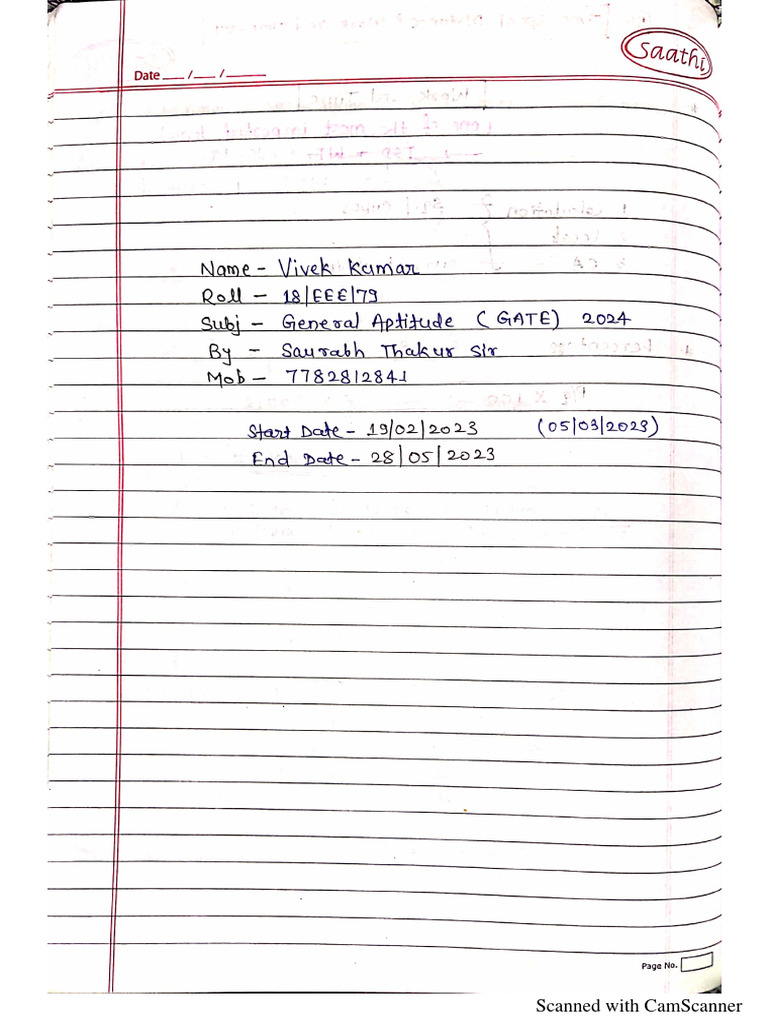 Saathi
Date ___ / ___ / _____
Name - Vivek Kumar
Roll - 18/EEE/79
Subj - General Aptitude ( GATE) 2024
By - Saurabh Thakur Sir
Mob - 7782812841
Start Date - 19/02/2023 (05/03/2023)
End Date - 28/05/2023
Page No.
Scanned with CamScanner